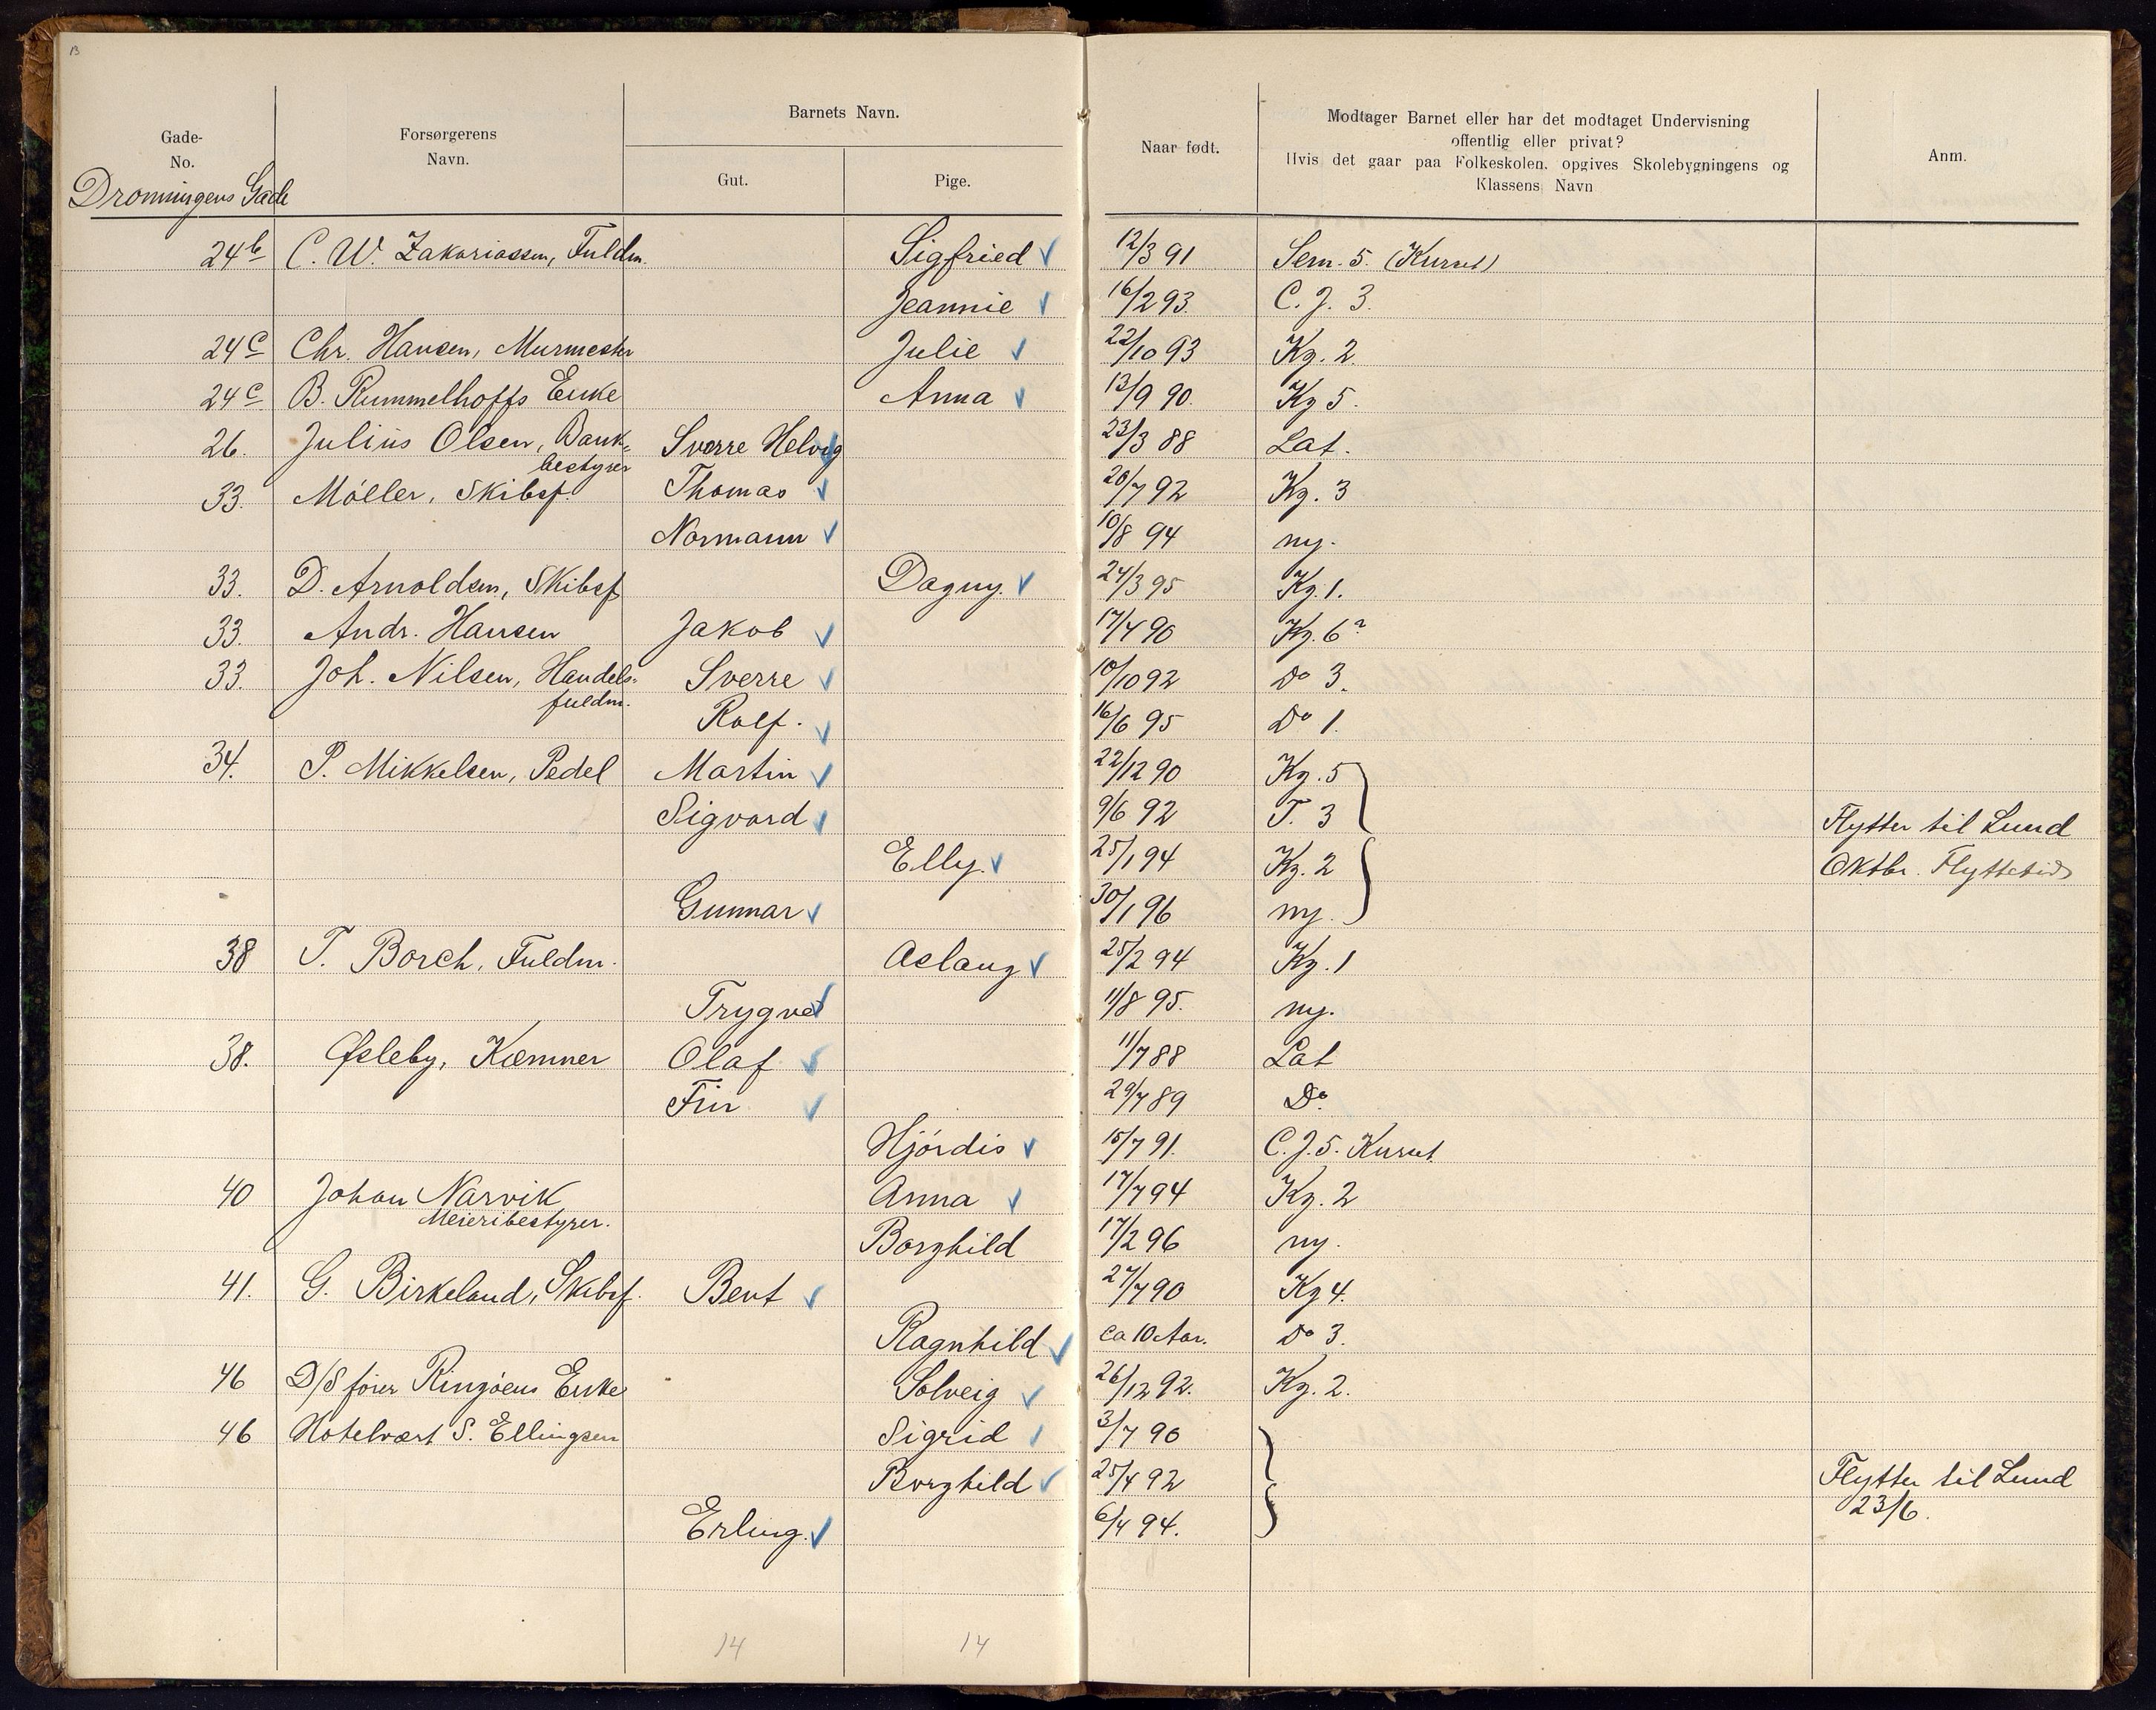 13
Barnets Navn.
Gade-
No.
Forsørgerens
Navn.
Gut.
Pige.
Naar født.
Modtager Barnet eller har det modtaget Undervisning
offentlig eller privat?
Hvis det gaar paa Folkeskolen, opgives Skolebygningens og
Klassens Navn
Anm.
Dronningens Gade
24b C. W. Zakariassen, Fuldm. Sigfried ✓ 12/3 91 Sem. 5. (Kurset)
Jeannie ✓ 16/2 93. C. J. 3.
24c Chr. Hansen, Murmester Julie ✓ 22/10 93 Kg. 2.
24c B. Rummelhoffs Enke Anna ✓ 13/9 90. Kg 5.
26. Julius Olsen, Bank- Sverre Helvig ✓ 23/3 88 Lat.
bestyrer
33. Möller, Skibsf. Thomas ✓ 20/7 92 Kg. 3
Normann ✓ 10/8 94 ny.
33. D. Arnoldsen, Skibsf Dagny. ✓ 24/3 95 Kg. 1.
33. Andr. Hansen Jakob ✓ 17/4 90 Kg. 6?
33. Joh. Nilsen, Handels- Sverre ✓ 10/10 92 Do 3.
fuldm.
Rolf. ✓ 16/6 95 Do 1.
34. P. Mikkelsen, Pedel Martin ✓ 22/12 90 Kg. 5
Sigvard ✓ 9/6 92 T. 3 Flytter til Lund
Elly. ✓ 25/1 94 Kg. 2 Oktbr. Flyttetid
Gunnar ✓ 30/1 96 ny.
38 T. Borch, Fuldm. Aslaug ✓ 25/2 94 Kg. 1
Trygve ✓ 11/8 95. ny.
38. Øsleby, Kæmner Olaf ✓ 11/7 88 Lat
Fin ✓ 29/7 89 Do.
Hjördis ✓ 15/7 91. C. J. 5. Kurset
40 Johan Narvik Anna ✓ 17/7 94 Kg. 2
Meieribestyrer.
Borghild 17/2 96 ny.
41. G. Birkeland, Skibsf. Bent ✓ 27/7 90 Kg 4.
Ragnhild ✓ ca 10 Aar. Do 3.
46 D/S fører Ringöens Enke Solveig ✓ 26/12 92. Kg. 2.
46 Hotelvært S. Ellingsen Sigrid ✓ 3/7 90
Borghild ✓ 25/4 92 Flytter til Lund
23/6.
Erling. ✓ 6/4 94.
14 14